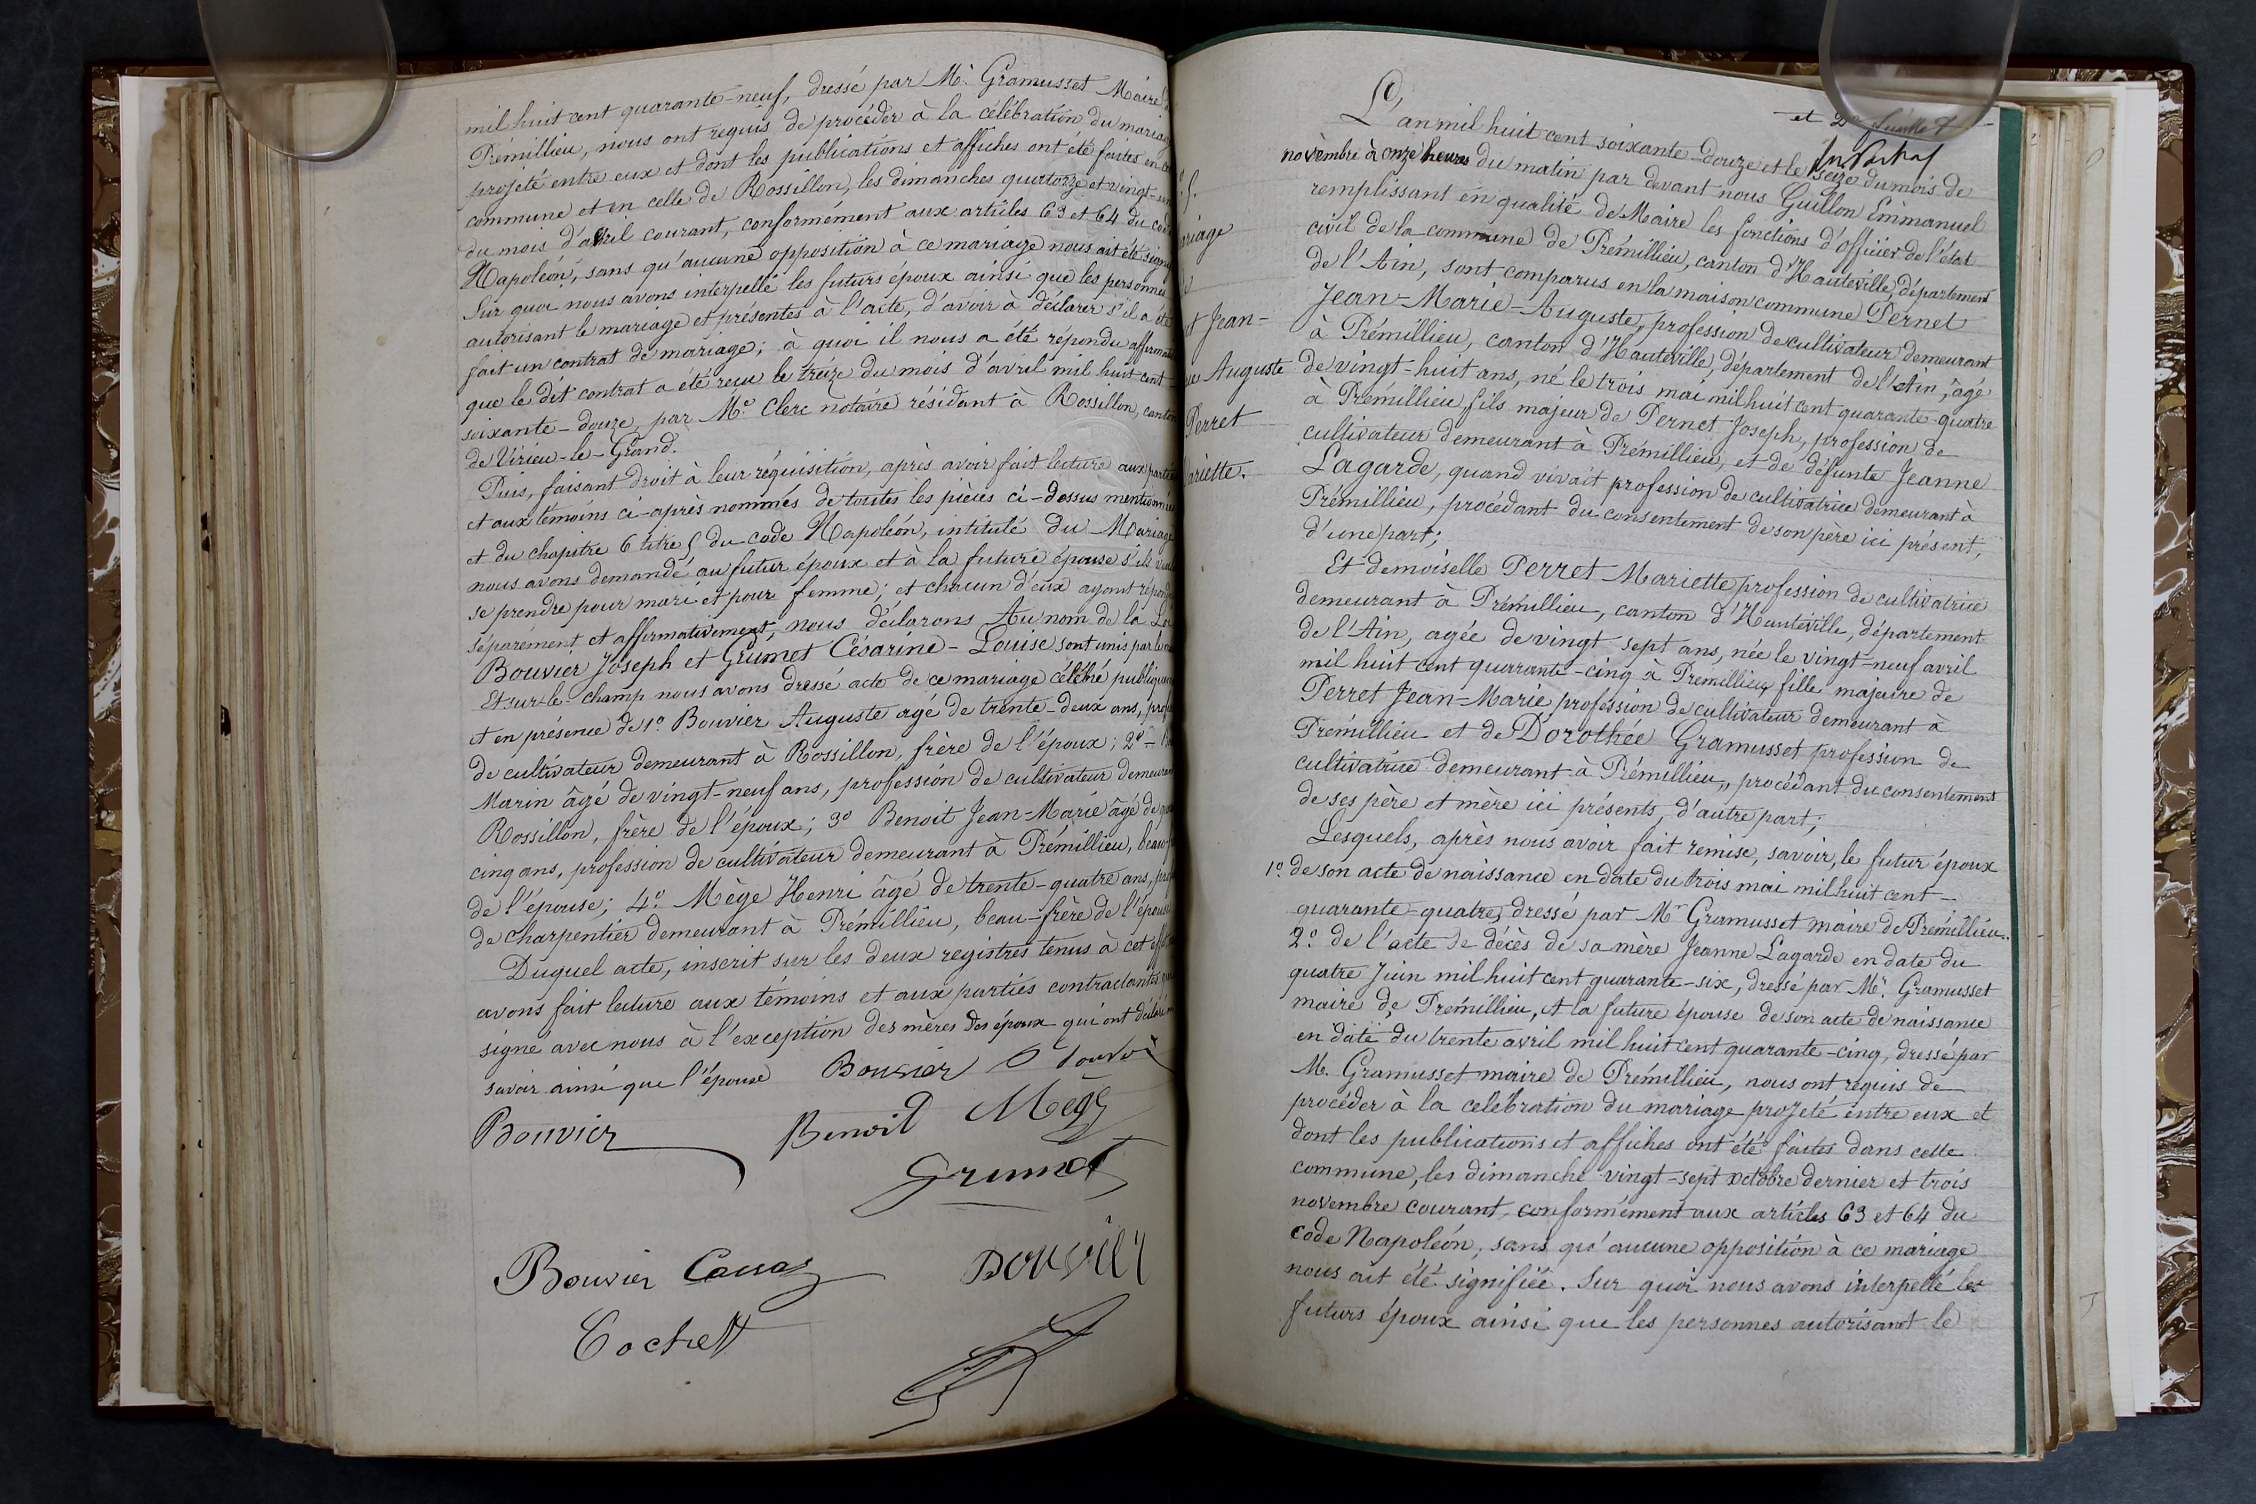 mil huit cent quarante-neuf, dressé par Mr. Gramusset Maire
Prémillieu, nous ont requis de procéder à la célébration du mariage
projeté entre eux et dont les publications et affiches ont été faites en
commune et en celle de Rossillon, les dimanches quatorze et vingt-un
du mois d'avril courant, conformément aux articles 63 et 64 du code
Napoléon, sans qu'aucune opposition à ce mariage nous ait été
Sur quoi nous avons interpellé les futurs époux ainsi que les personnes
autorisant le mariage et présentes à l'acte, d'avoir à déclarer s'il a été
fait un contrat de mariage; à quoi il nous a été répondu
que le dit contrat a été reçu le treize du mois d'avril mil huit cent
soixante-douze, par Me. Clerc notaire résidant à Rossillon, canton
de Virieu-le-Grand.
Puis, faisant droit à leur réquisition, après avoir fait lecture aux parties
et aux témoins ci-après nommés de toutes les pièces ci-dessus mentionnées
et du chapitre 6 titre 5 du code Napoléon, intitulé Du Mariage
nous avons demandé au futur époux et à la future épouse s'ils
se prendre pour mari et pour femme; et chacun d'eux ayant
séparement et affirmativement, nous déclarons Au nom de la Loi
Bouvier Joseph et Grumet Césarine-Louise sont unis par le
Et sur-le-champ nous avons dressé acte de ce mariage célébré
et en présence de 1o. Bouvier Auguste âgé de trente-deux ans,
de cultivateur demeurant à Rossillon, frère de l'époux; 2o
Marin âgé de vingt-neuf ans, profession de cultivateur demeurant
Rossillon, frère de l'époux; 3o Benoit Jean-Marie âgé de
cinq ans, profession de cultivateur demeurant à Prémillieu,
de l'épouse; 4o. Mège Henri âgé de trente-quatre ans,
de charpentier demeurant à Prémillieu, beau-frère de l'épouse
Duquel acte, inscrit sur les deux registres tenus à cet
avons fait lecture aux témoins et aux parties contractantes
signé avec nous à l'exception des mères des époux qui ont déclaré
savoir ainsi que l'épouse Bouvier
Bouvier Benoit Mège
Grumet
Bouvier
Cochet
et Jean-
Auguste
Perret
L'an mil huit cent soixante-douze et le seize du mois de
novembre à onze heures du matin par devant nous Guillon Emmanuel
remplissant en qualité de Maire les fonctions d'officier de l'état
civil de la commune de Prémillieu, canton d'Hauteville, département
de l'Ain, sont comparus en la maison commune Pernet
Jean-Marie-Auguste, profession de cultivateur demeurant
à Prémillieu, canton d'Hauteville, département de l'Ain, âgé
de vingt-huit ans, né le trois mai mil huit cent quarante-quatre
à Prémillieu, fils majeur de Pernet Joseph, profession de
cultivateur demeurant à Prémillieu, et de défunte Jeanne
Lagarde, quand vivait profession de cultivatrice demeurant à
Prémillieu, procédant du consentement de son père ici présent,
d'une part;
Et demoiselle Perret Mariette profession de cultivatrice
demeurant à Prémillieu, canton d'Hauteville, département
de l'Ain, agée de vingt sept ans, née le vingt-neuf avril
mil huit cent quarante-cinq à Prémillieu, fille majeure de
Perret Jean-Marie profession de cultivateur demeurant à
Prémillieu et de Dorothée Gramusset profession de
cultivatrice demeurant à Prémillieu, procédant du consentement
de ses père et mère ici présents, d'autre part;
Lesquels, après nous avoir fait remise, savoir, le futur époux
1o. de son acte de naissance en date du trois mai mil huit cent
quarante-quatre, dressé par Mr Gramusset maire de Prémillieu.
2o. de l'acte de décès de sa mère Jeanne Lagarde en date du
quatre Juin mil huit cent quarante-six, dressé par Mr. Gramusset
maire de Prémillieu, et la future épouse de son acte de naissance
en date du trente avril mil huit cent quarante-cinq, dressé par
M. Gramusset maire de Prémillieu, nous ont requis de
procéder à la célébration du mariage projeté entre eux et
dont les publications et affiches ont été faites dans cette
commune, les dimanche vingt-sept octobre dernier et trois
novembre courant, conformément aux articles 63 et 64 du
code Napoléon, sans qu'aucune opposition à ce mariage
nous ait été signifiée. Sur quoi nous avons interpellé les
futurs époux ainsi que les personnes autorisant le